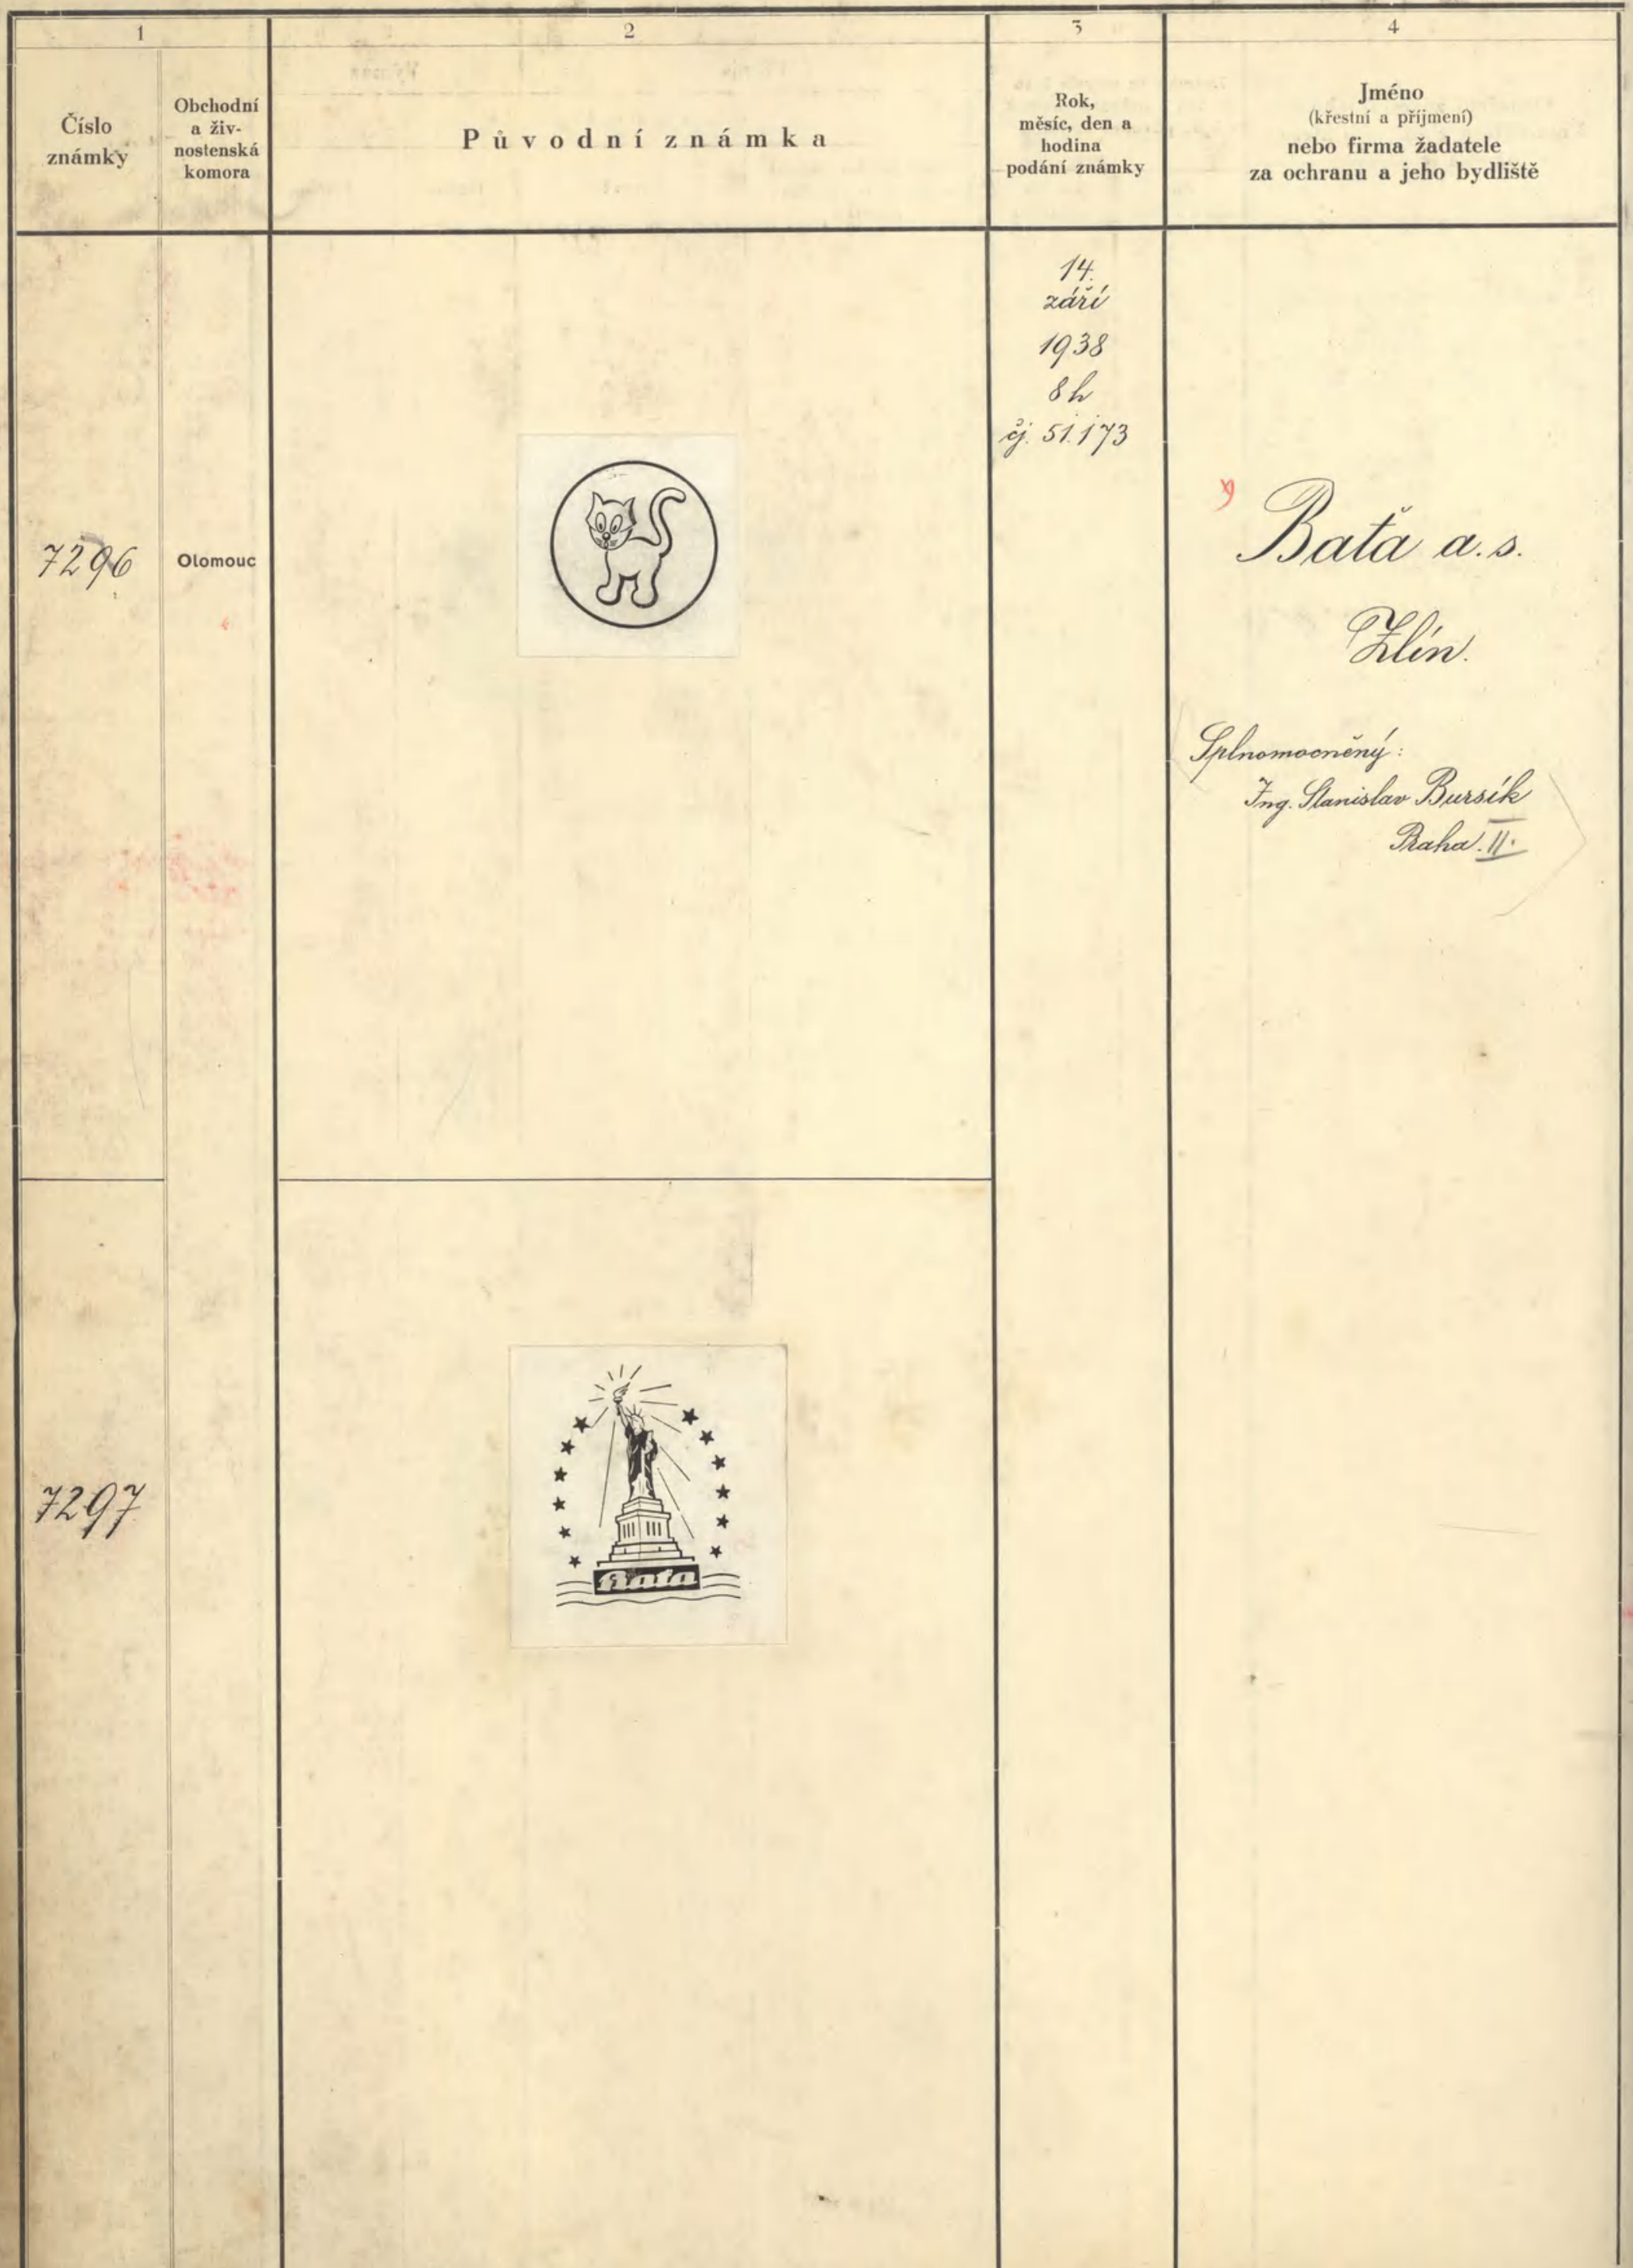 1
2
3
4
Číslo
známky
Obchodní
a živ-
nostenská
komora
Původní známka
Rok,
měsíc, den a
hodina
podání známky
Jméno
(křestní a příjmení)
nebo firma žadatele
za ochranu a jeho bydliště
14.
září
1938
8 h
čj. 51.173
7296
Olomouc
Baťa a. s.
Zlín.
Splnomocněný:
Ing. Stanislav Bursík
Praha II.
7297
Bata